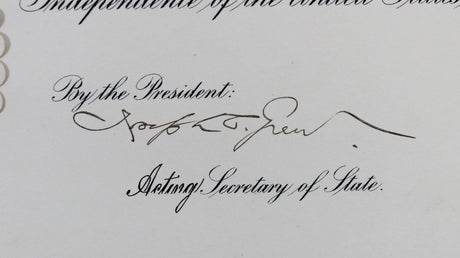 Independence of the United States
By the President:
Joseph C. Grew
Acting Secretary of State.